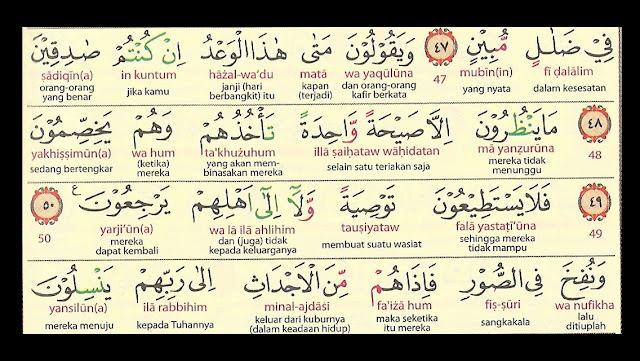 فِيْ ضَلٰلٍ مُّبِيْنٍ ٤٧ وَيَقُوْلُوْنَ مَتٰى هٰذَا الْوَعْدُ اِنْ كُنْتُمْ صٰدِقِيْنَ
fī ḍalālim mubīn(in) 47 wa yaqūlūna matā hāżal-wa‘du in kuntum ṣādiqīn(a)
dalam kesesatan yang nyata dan orang-orang kafir berkata kapan (terjadi) janji (hari berbangkit) itu jika kamu orang-orang yang benar
مَا يَنْظُرُوْنَ ٤٨ اِلَّا صَيْحَةً وَّاحِدَةً تَأْخُذُهُمْ وَهُمْ يَخِصِّمُوْنَ
mā yanẓurūna 48 illā ṣaiḥataw wāḥidatan ta'khużuhum wa hum yakhiṣṣimūn(a)
mereka tidak menunggu selain satu teriakan saja yang akan mem-binasakan mereka (ketika) mereka sedang bertengkar
٤٩ فَلَا يَسْتَطِيْعُوْنَ تَوْصِيَةً وَّلَآ اِلٰٓى اَهْلِهِمْ يَرْجِعُوْنَ ࣖ ٥٠
49 falā yastaṭī‘ūna tauṣiyataw wa lā ilā ahlihim yarji‘ūn(a) 50
sehingga mereka tidak mampu membuat suatu wasiat dan (juga) tidak kepada keluarganya mereka dapat kembali
وَنُفِخَ فِى الصُّوْرِ فَاِذَا هُمْ مِّنَ الْاَجْدَاثِ اِلٰى رَبِّهِمْ يَنْسِلُوْنَ
wa nufikha fiṣ-ṣūri fa'iżā hum minal-ajdāṡi ilā rabbihim yansilūn(a)
lalu ditiuplah sangkakala maka seketika itu mereka keluar dari kuburnya (dalam keadaan hidup) kepada Tuhannya mereka menuju